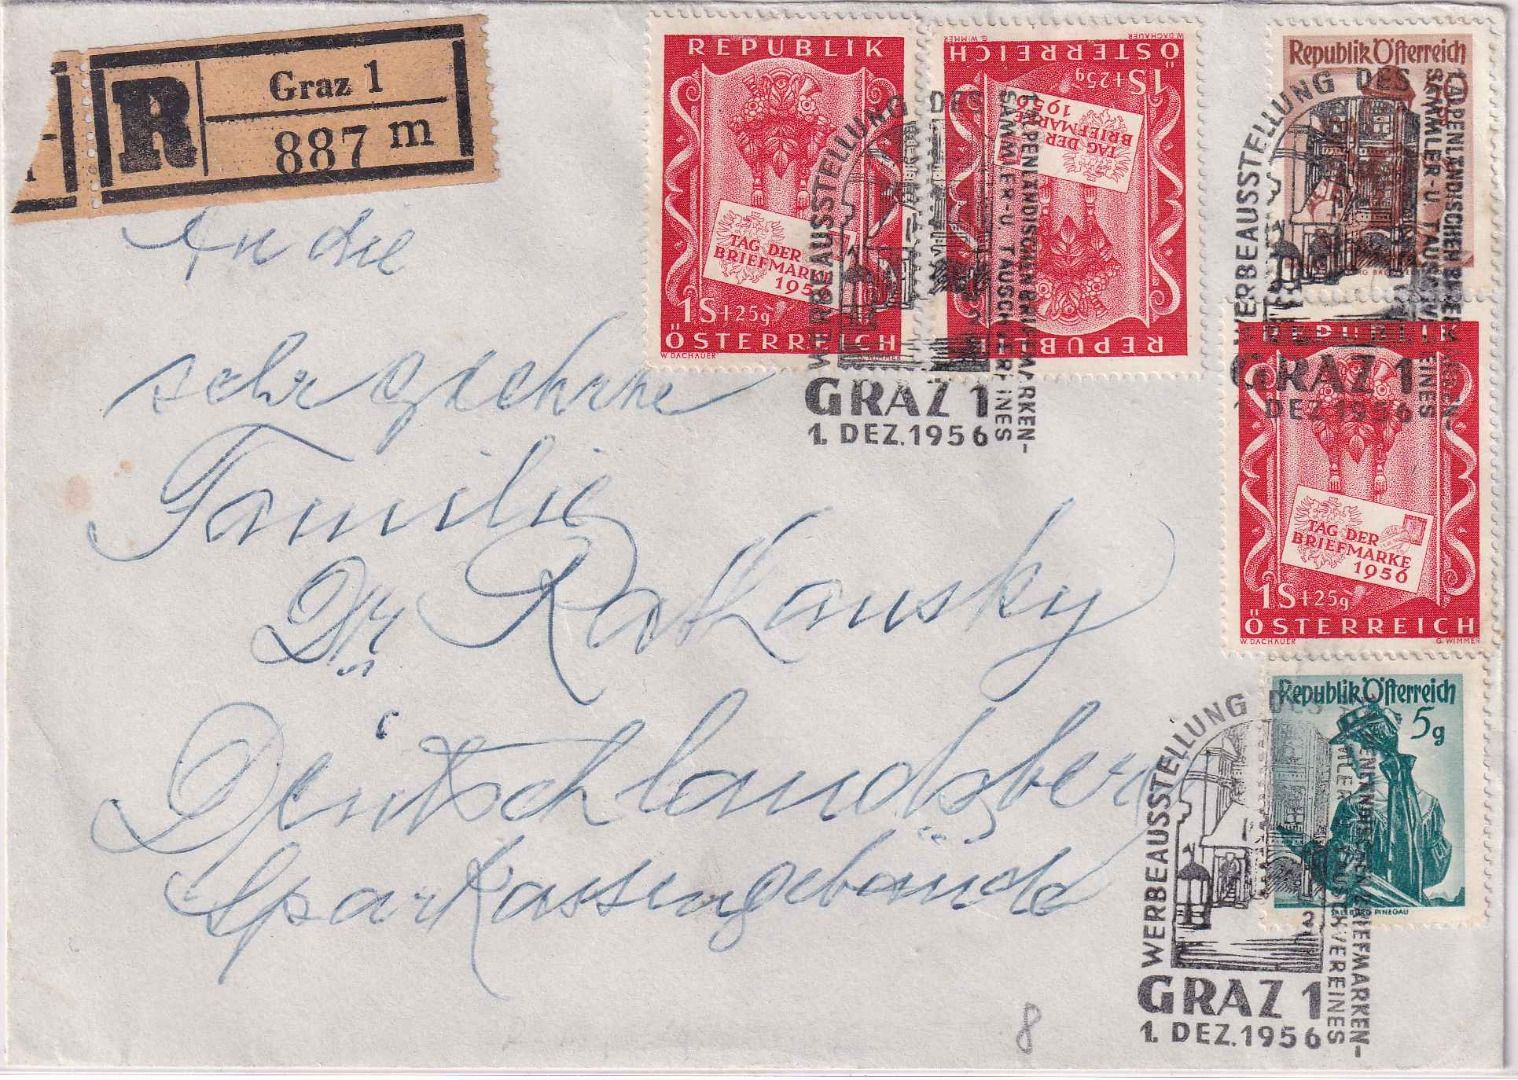 R
Graz 1
887 m
REPUBLIK
TAG DER
BRIEFMARKE
195
1S+25g
ÖSTERREICH
W. DACHAUER
G. WIMMER
REPUBLIK
TAG DER
BRIEFMARKE
1956
1S+25g
ÖSTERREICH
W. DACHAUER
G. WIMMER
Republik Österreich
WERBEAUSSTELLUNG DES
SAMMLER-U. TAUSCHVEREINES
GRAZ 1
1. DEZ. 1956
WERBEAUSSTELLUNG DES ALPENLÄNDISCHEN BRIEFMARKEN-
SAMMLER-U. TAUSCHVEREINES
GRAZ 1
1. DEZ. 1956
REPUBLIK
TAG DER
BRIEFMARKE
1956
1S+25g
ÖSTERREICH
W. DACHAUER
G. WIMMER
Republik Österreich
5g
SALZBURG PINZGAU
WERBEAUSSTELLUNG DES
BRIEFMARKEN-
TAUSCHVEREINES
2
GRAZ 1
1. DEZ. 1956
An die
sehr geehrte
Familie
Dr Rakansky
Deutschlandsberg
Sparkassengebäude
8